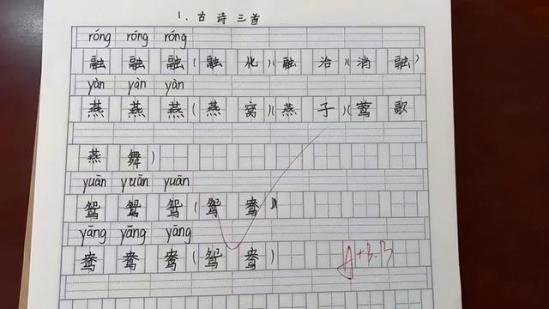 1. 古诗三首
róng róng róng
融融融(融化)(融洽)(消融)
yàn yàn yàn
燕燕燕(燕窝)(燕子)(莺歌
燕舞)
yuān yuān yuān
鸳鸳鸳(鸳鸯)
yāng yāng yāng
鸯鸯鸯(鸳鸯)
A+B.B